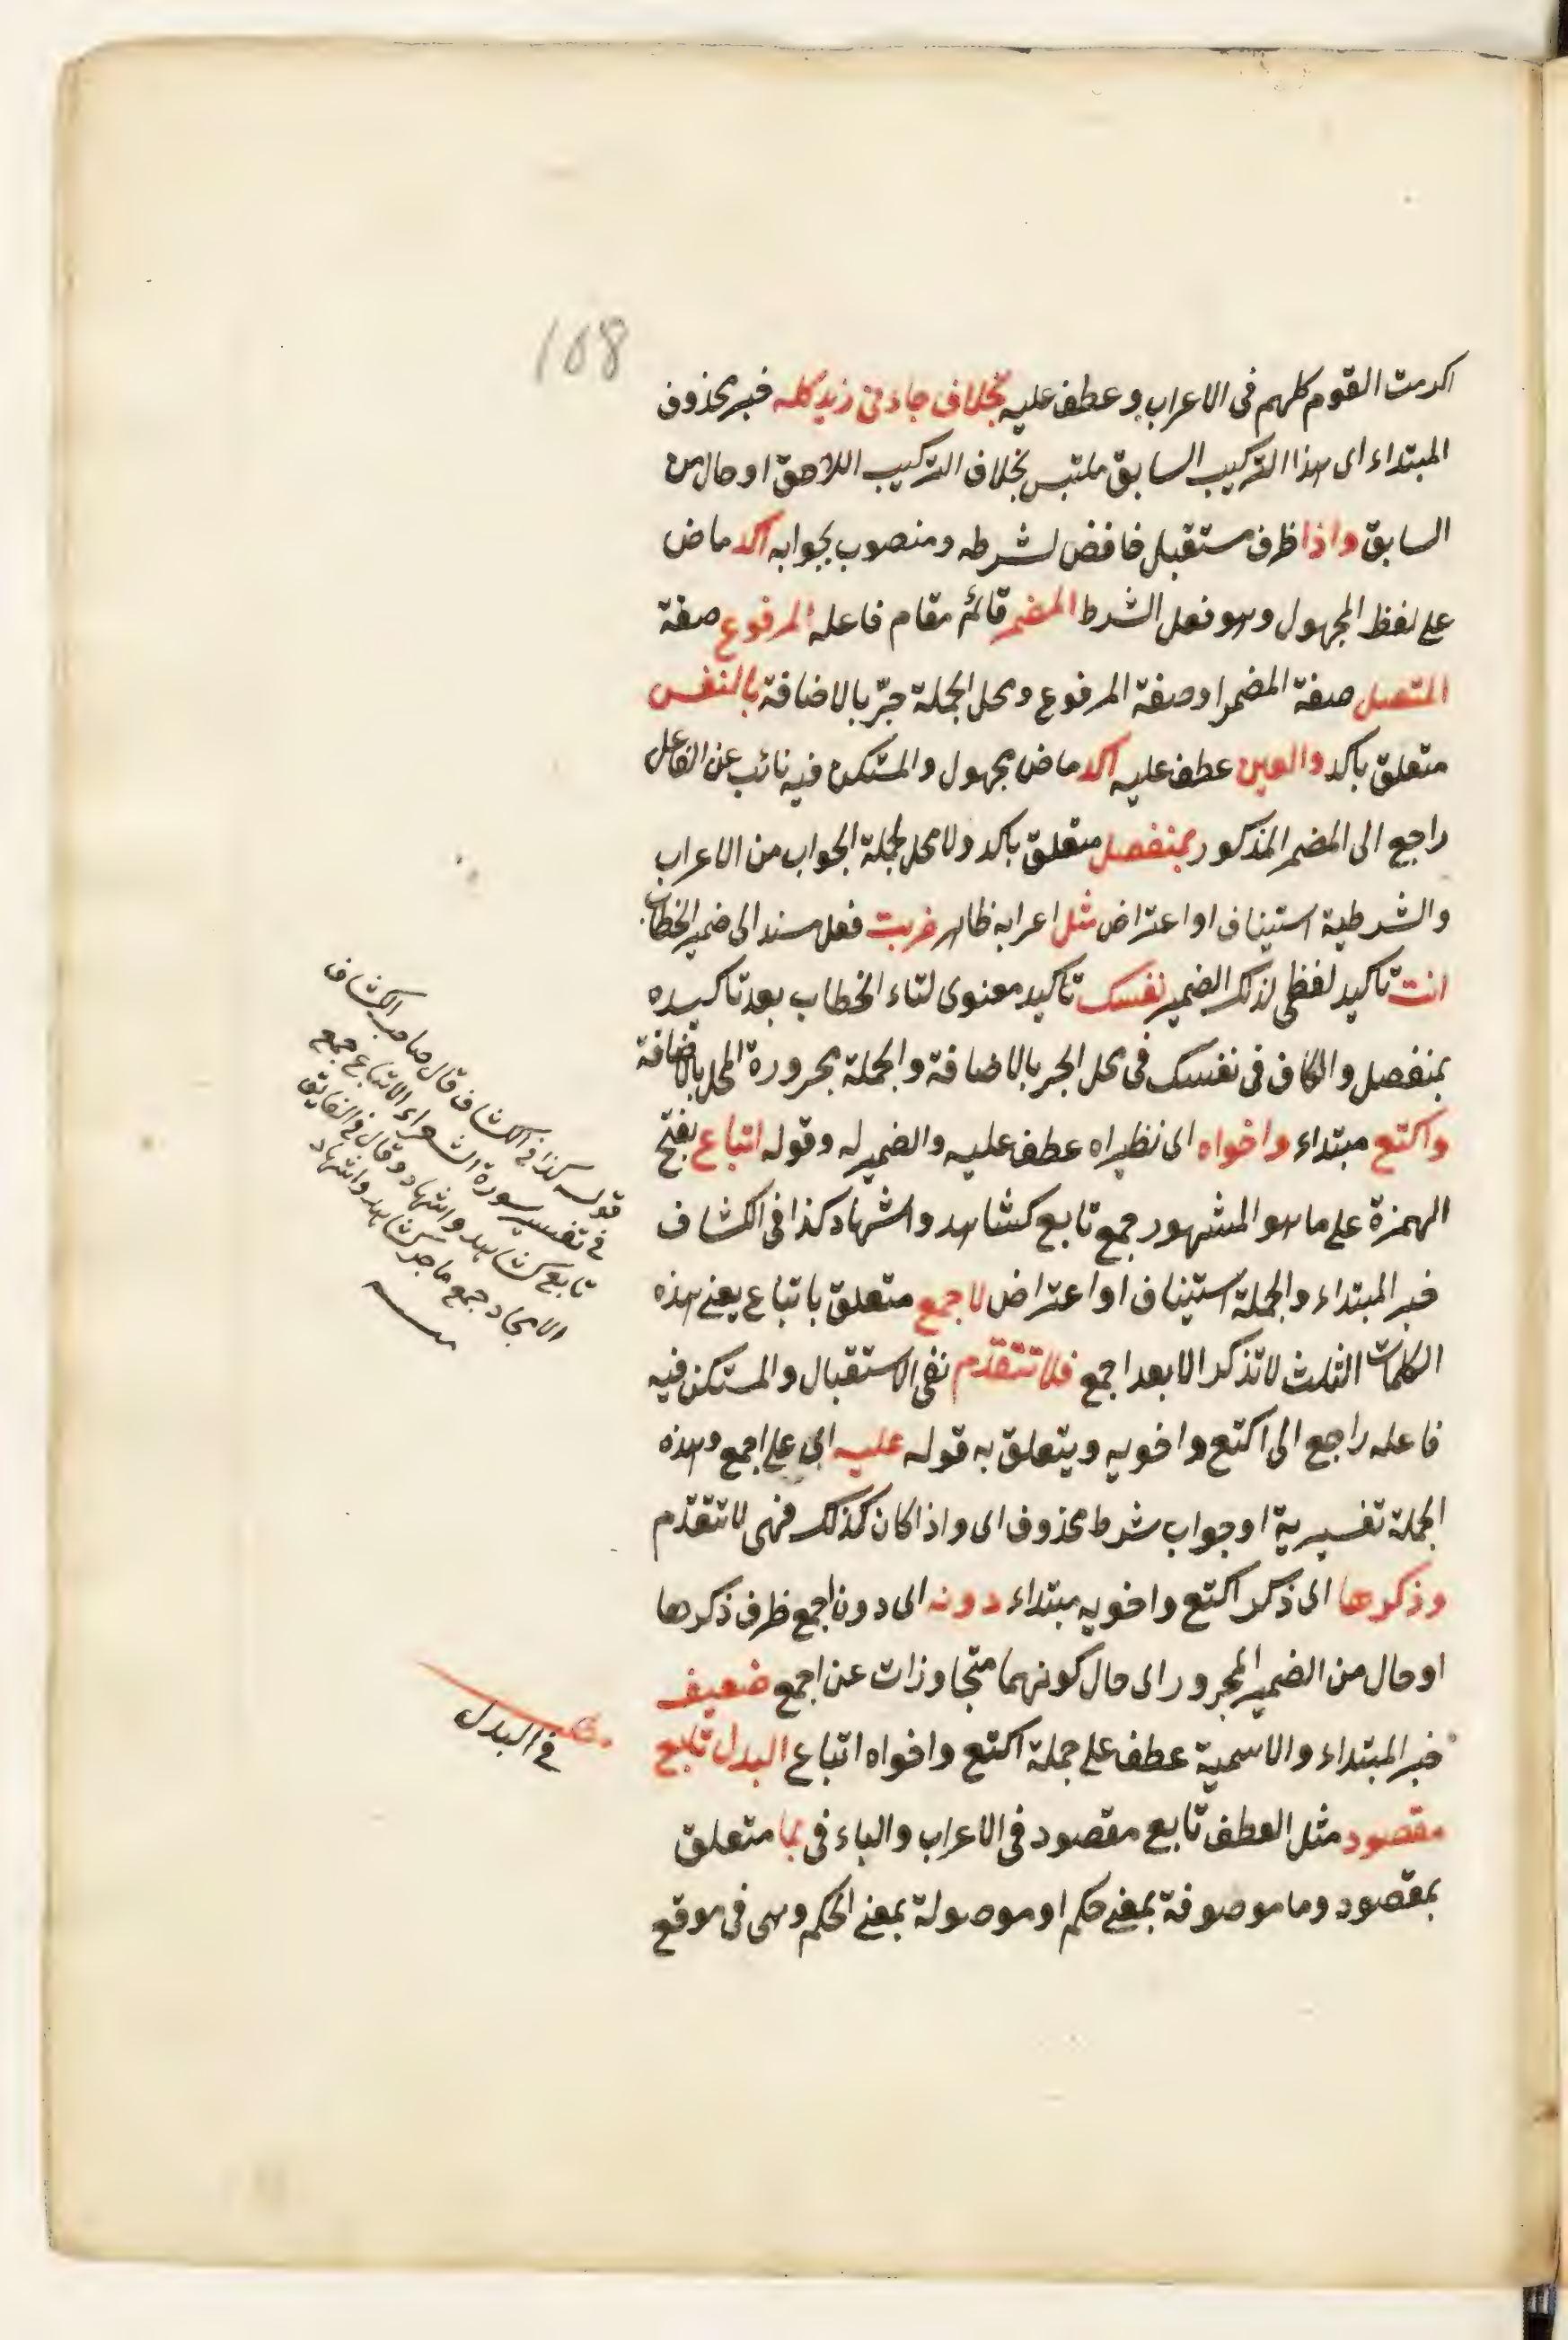 108
اكرمت القوم كلهم فى الاعراب وعطف عليه بخلاف جاءنى زيد كله خبر محذوف
المبتداء اى هذا التركيب السابق ملتبس بخلاف التركيب اللاحق او حال من
السابق واذا ظرف مستقبل خافض لشرطه ومنصوب بجوابه اكد ماض
على لفظ المجهول وهو فعل الشرط المضمر قائم مقام فاعله المرفوع صفة
المتصل صفة المضمر او صفة المرفوع ومحل الجملة جرّ بالاضافة بالنفس
متعلق باكد والعين عطف عليه اكد ماض مجهول والمستكن فيه نائب عن الفاعل
راجع الى المضمر المذكور بمنفصل متعلق باكد ولا محل لجملة الجواب من الاعراب
والشرطية استيناف او اعتراض مثل اعرابه ظاهر ضربت فعل مسند الى ضمير الخطاب
انت تاكيد لفظى لذلك الضمير نفسك تاكيد معنوى لتاء الخطاب بعد تاكيده
بمنفصل والكاف فى نفسك فى محل الجر بالاضافة والجملة مجرورة المحل بالاضافة
واكتع مبتداء واخواه اى نظيراه عطف عليه والضمير له وقوله اتباع بفتح
الهمزة على ما هو المشهور جمع تابع كشاهد واشهاد كذا فى الكشاف
خبر المبتداء والجملة استيناف او اعتراض لاجمع متعلق باتباع يعنى هذه
الكلمات الثلث لا تذكر الا بعد اجمع فلا تتقدم نفى الاستقبال والمستكن فيه
فاعله راجع الى اكتع واخويه ويتعلق به قوله عليه اى على اجمع وهذه
الجملة تفسيرية او جواب شرط محذوف اى واذا كان كذلك فهى لا تتقدم
وذكرها اى ذكر اكتع واخويه مبتداء دونه اى دون اجمع ظرف ذكرها
او حال من الضمير المجرور اى حال كونهما متجاوزات عن اجمع ضعيف
خبر المبتداء والاسمية عطف على جملة اكتع واخواه اتباع البدل تابع
مقصود مثل العطف تابع مقصود فى الاعراب والباء فى بما متعلق
بمقصود وما موصوفة بمعنى حكم او موصولة بمعنى الحكم وهى فى موقع
قوله كذا فى الكشاف قال صاحب الكشاف
فى تفسير سورة الشعراء الاتباع جمع
تابع كشاهد واشهاد وقال فى الفايق
الامجاد جمع ماجد كشاهد واشهاد
فى البدل